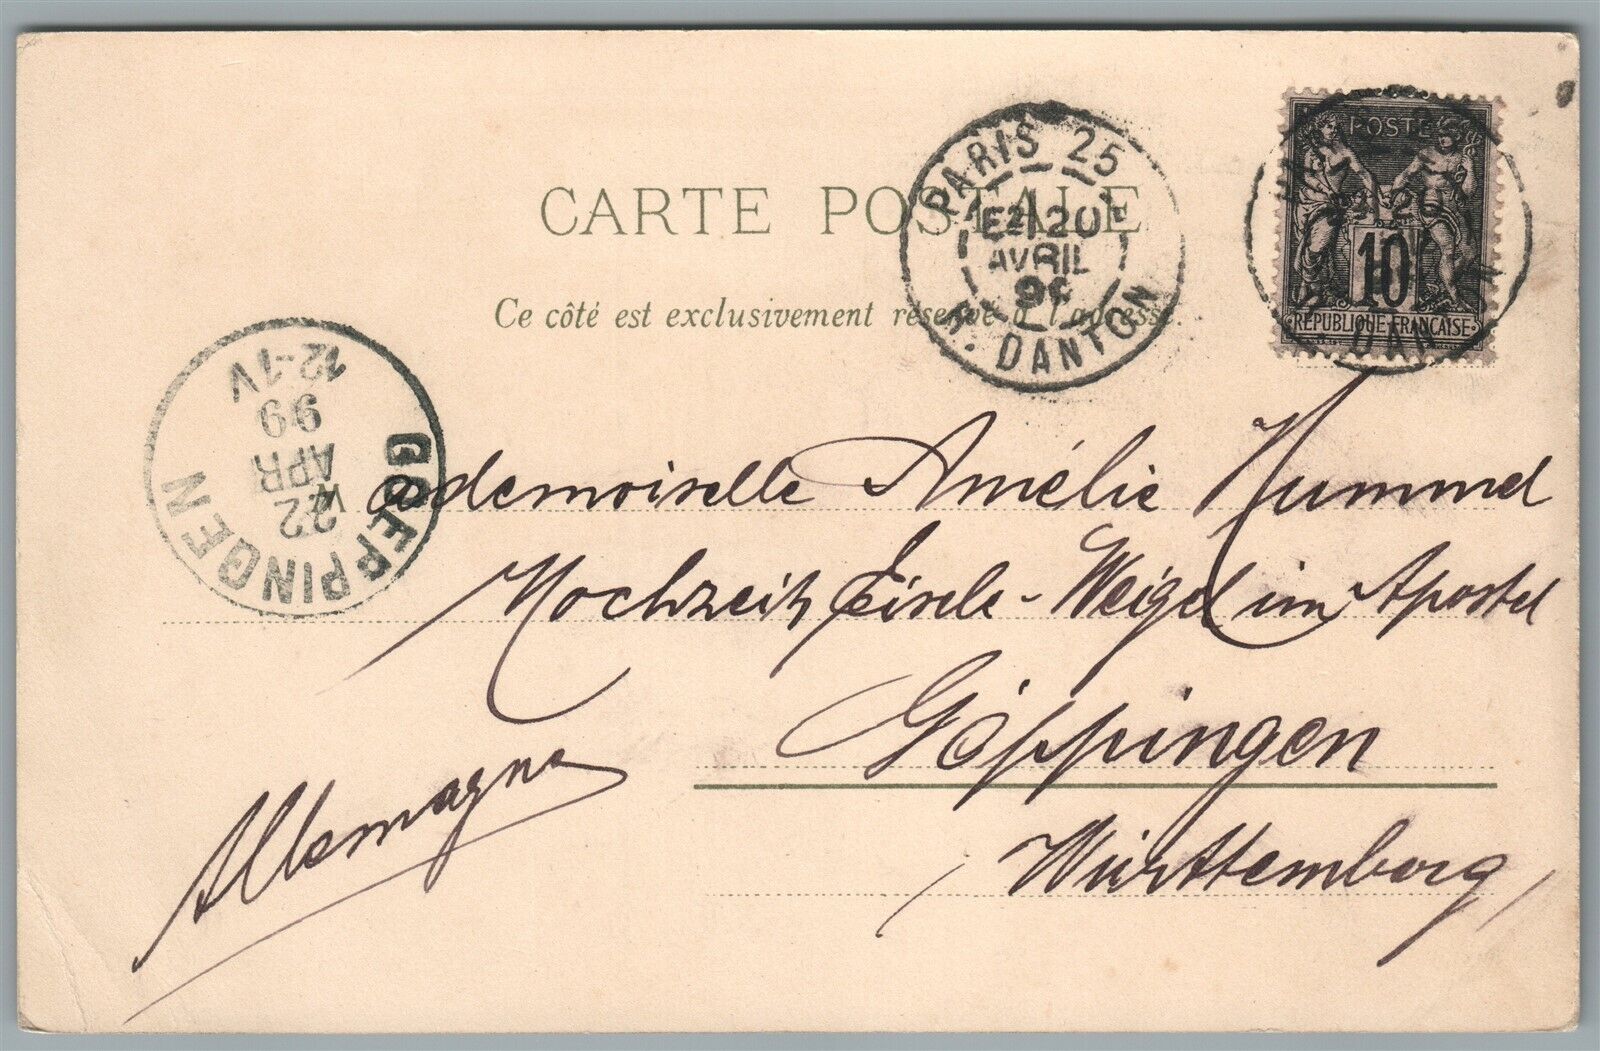 CARTE POSTALE
Ce côté est exclusivement réservé à l'adresse.
PARIS 25
E2 20
AVRIL
99
R. DANTON
POSTES
10
REPUBLIQUE FRANÇAISE
DANTON
GOEPPINGEN
22
APR
99
12-1V
Mademoiselle Amélie Hummel
Hochzeit Eisele-Weigel im Apostel
Göppingen
Württemberg
Allemagne